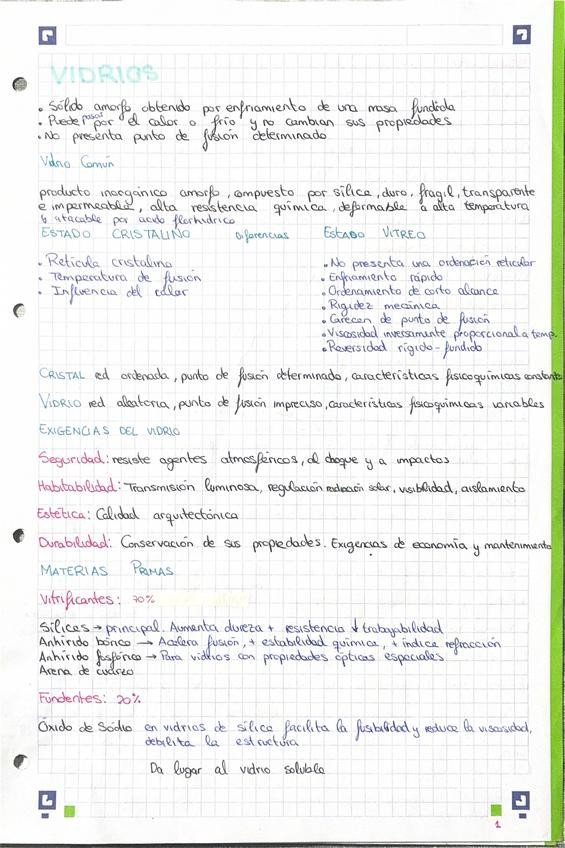 VIDRIOS
• Sólido amorfo obtenido por enfriamiento de una masa fundida
• Puede pasar por el calor o frío y no cambian sus propiedades
• No presenta punto de fusión determinado
Vidrio Común
producto inorgánico amorfo, compuesto por sílice, duro, fragil, transparente
e impermeable, alta resistencia química, deformable a alta temperatura
↳ atacable por ácido florhídrico
ESTADO CRISTALINO Diferencias ESTADO VITREO
• Retícula cristalina
• Temperatura de fusión
• Influencia del calor
• No presenta una ordenación reticular
• Enfriamiento rápido
• Ordenamiento de corto alcance
• Rigidez mecánica
• Carecen de punto de fusión
• Viscosidad inversamente proporcional a temp.
• Reversidad rígido-fundido
CRISTAL red ordenada, punto de fusión determinado, características fisicoquímicas constante
VIDRIO red aleatoria, punto de fusión impreciso, características fisicoquímicas variables
EXIGENCIAS DEL VIDRIO
Seguridad: resiste agentes atmosféricos, al choque y a impactos
Habitabilidad: Transmisión luminosa, regulación radiación solar, visibilidad, aislamiento
Estética: Calidad arquitectónica
Durabilidad: Conservación de sus propiedades. Exigencias de economía y mantenimiento
MATERIAS PRIMAS
Vitrificantes: 70%
Sílices → principal. Aumenta dureza + resistencia ↓ trabajabilidad
Anhídrido bórico → Acelera fusión, + estabilidad química, + índice refracción
Anhídrido fosfórico → Para vidrios con propiedades ópticas especiales
Arena de cuarzo
Fundentes: 20%
Óxido de Sodio en vidrios de sílice facilita la fusibilidad y reduce la viscosidad,
debilita la estructura
Da lugar al vidrio soluble
1